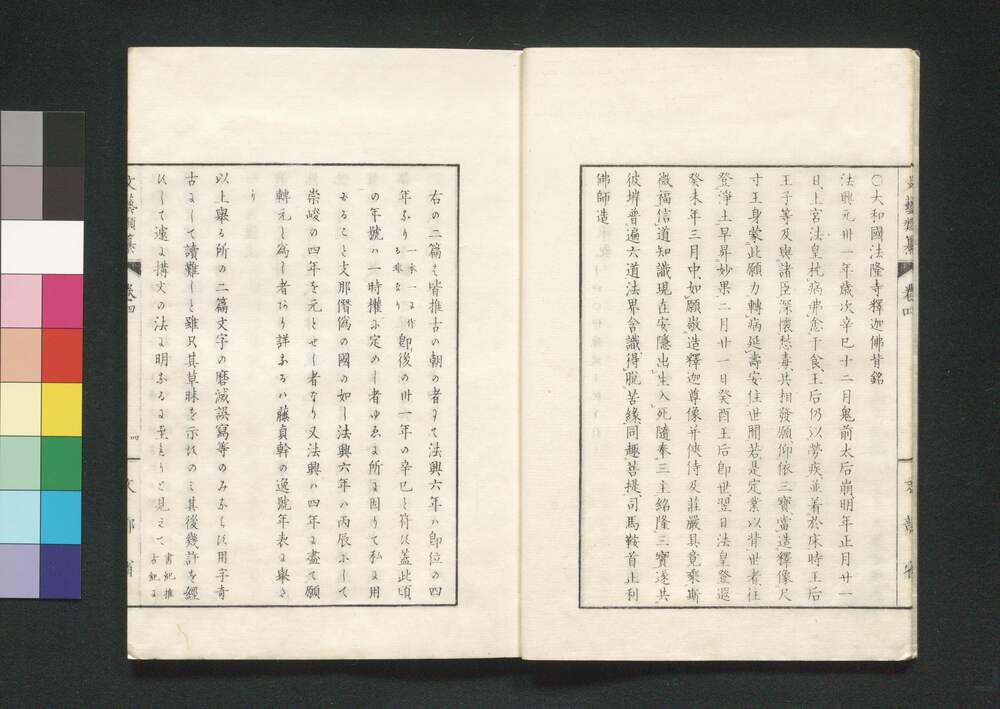 〇大和國法隆寺釋迦佛背銘
法興元卅一年歳次辛巳十二月鬼前太后崩明年正月廿一
日上宮法皇枕病弗悆干食王后仍以勞疾並着於床時王后
王子等及與諸臣深懷愁毒共相發願仰依三寶當造釋像尺
寸王身蒙此願力轉病延壽安住世間若是定業以背世者往
登淨土早昇妙果二月廿一日癸酉王后即世翌日法皇登遐
癸未年三月中如願敬造釋迦尊像并俠侍及莊嚴具竟乘斯
微福信道知識現在安隱出生入死隨奉三主紹隆三寶遂共
彼埒普遍六道法界含識得脫苦緣同趣菩提司馬鞍首止利
佛師造
右の二篇は皆推古の朝の者にて法興六年ハ即位の四
年なり 一本一に作るハ非なり 即後の卅一年の辛巳と符ハ蓋此頃
の年號ハ一時權に定めし者ゆゑに所に因りて私に用
ゐること支那僭僞の國の如し法興六年ハ丙辰にして
崇峻の四年を元とせし者なり又法興ハ四年に盡て願
轉元と爲し者あり詳なるハ藤貞幹の逸號年表に擧た
り
以上擧る所の二篇文字の磨滅誤寫等のみならず用字奇
古にして讀難しと雖只其草昧を示すのミ其後幾許を經
ずして遽に構文の法に明なるに至たりと見えて 書紀推古紀に
文藝類纂 卷四
四 文部省